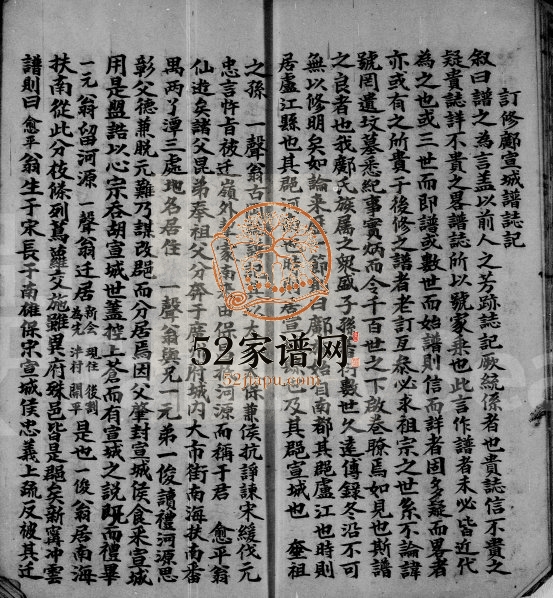 訂修鄺宣城譜誌記
叙曰譜之為言盖以前人之芳跡誌記厥統係者也貴誌信不貴之
疑貴誌詳不貴之畧譜誌所以號家乘也此言作譜者未必皆近代
為之也或三世而即譜或數世而始譜則信而詳者固多疑而畧者
亦或有之所貴于後修之譜者老訂互叅必求祖宗之世系不論諱
號罔遺坟墓悉紀事實炳而今千百世之下啟卷瞭焉如見也斯譜
之良者也我鄺氏族属之衆盛子孫 数世久遠傳録冬沿不可
無以修明矣如論來 節 曰鄺 始自南都其郡盧江也時則
居盧江縣也其郡河南也時 居宣 及其郡宣城也 奎祖
之孫 一聲翁古 記 大 保兼侯抗諍諫宋緩伐元
忠言忤旨被迁嶺外 家南 由保 河源而稱于君 愈平翁
仙遊矣諸父昆弟奉祖父分奔于廣 府城内大市街南海扶南番
禺两丫潭三處地名居住 一聲翁與兄一元弟一俊讀禮河源思
彰父德兼脱元難乃謀改郡而分居焉因父肇封宣城侯食采宣城
用是盟誥以心宗吞胡宣城世盖控上蒼而有宣城之説既而禮畢
一元翁留河源 一聲翁迁居 新会 現住 後割 為完 泮村 開平 是也一俊翁居南海
扶南從此分枝條列蔦蘿交施雖異府殊邑皆是郡矣新寧冲雲
譜則曰 愈平翁生于宋長于南雄保宋宣城侯忠義上疏反被其迁
52家谱网
52jiapu.com